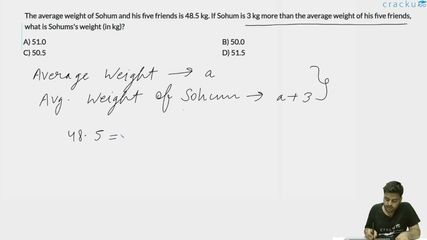 cracku
The average weight of Sohum and his five friends is 48.5 kg. If Sohum is 3 kg more than the average weight of his five friends,
what is Sohums's weight (in kg)?
A) 51.0 B) 50.0
C) 50.5 D) 51.5
Average Weight → a
Avg. Weight of Sohum → a+3 }
48.5 =